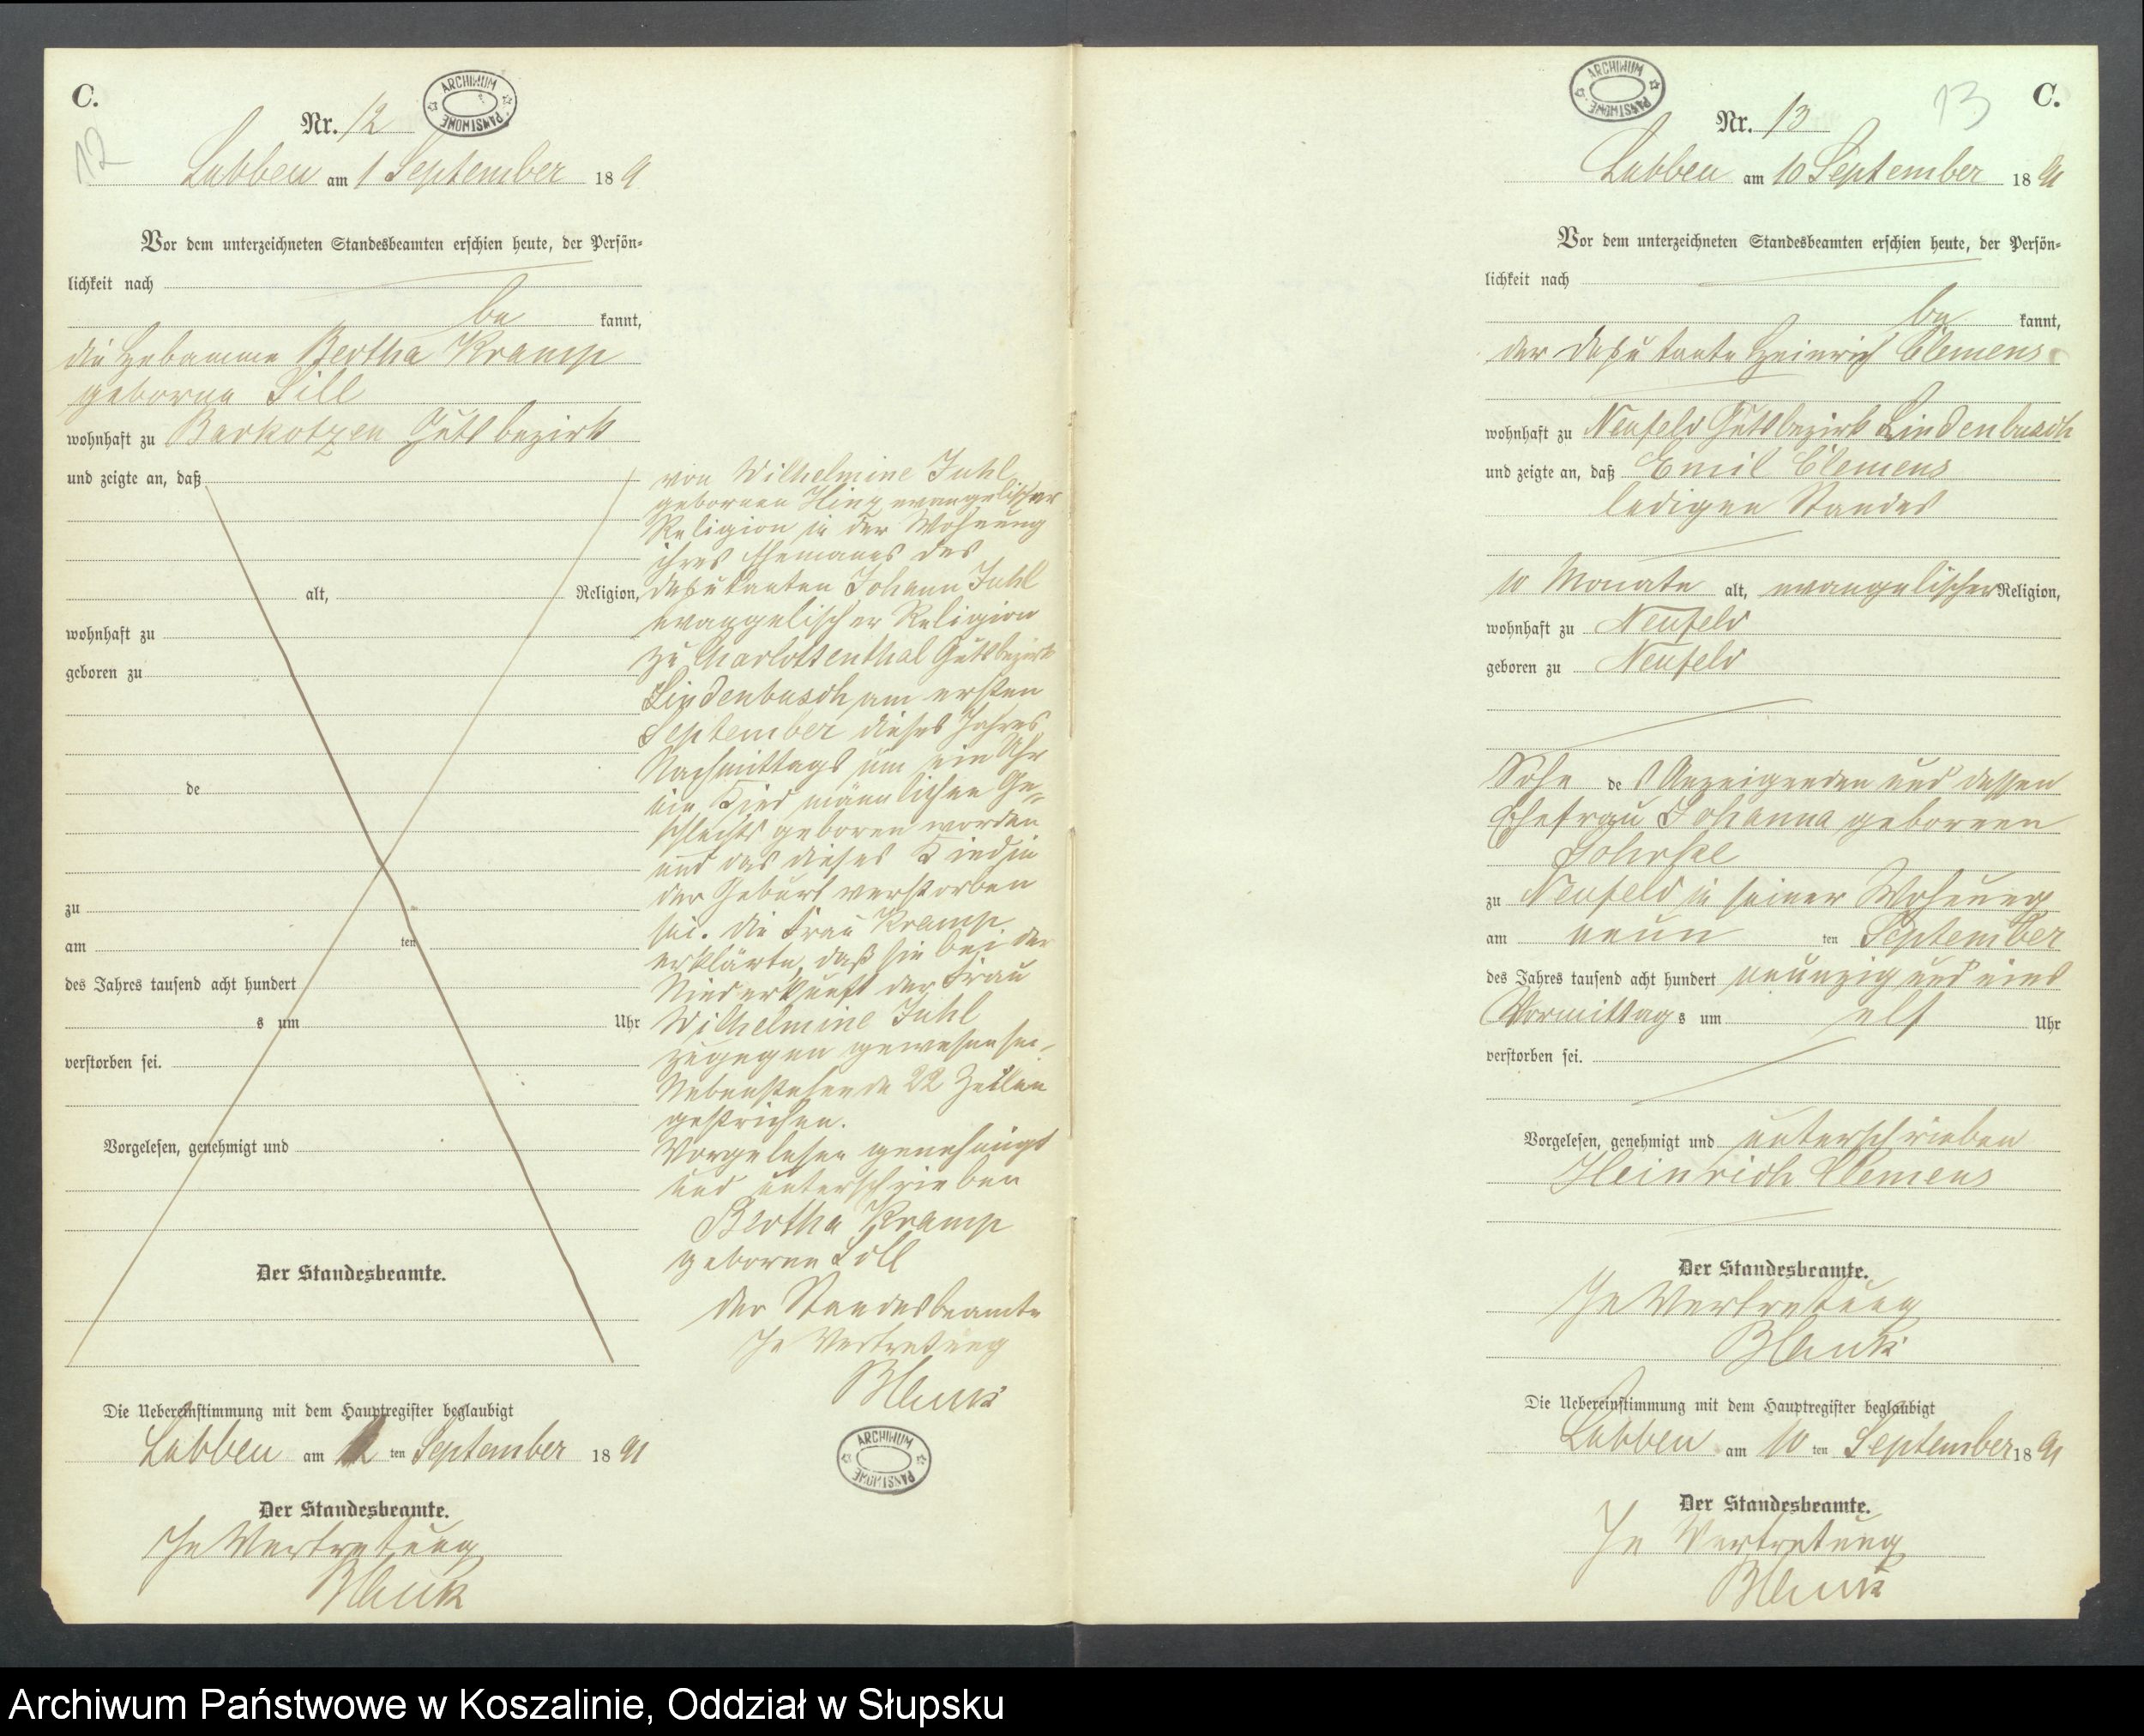 C.
12
ARCHIWUM PAŃSTWOWE
Nr. 12
Labben am 1 September 189
Vor dem unterzeichneten Standesbeamten erschien heute, der Persön=
lichkeit nach
be kannt,
die Hebamme Bertha Kramp
geborne Sill
wohnhaft zu Barkotzen Gutsbezirk
und zeigte an, daß
alt, Religion,
wohnhaft zu
geboren zu
de
zu
am ten
des Jahres tausend acht hundert
s um Uhr
verstorben sei.
Vorgelesen, genehmigt und
Der Standesbeamte.
von Wilhelmine Juhl
gebornen Hinz evangelischer
Religion in der Wohnung
ihres Ehemanns des
Deputanten Johann Juhl
evangelischer Religion
zu Charlottenthal Gutsbezirk
Lindenbusch am ersten
September dieses Jahres
Nachmittags um ein Uhr
ein Kind männlichen Ge=
schlechts geboren worden
und das dieses Kind in
der Geburt verstorben
sei. Die Frau Kramp
erklärte, daß sie bei der
Niederkunft der Frau
Wilhelmine Juhl
zugegen gewesen sei.
Nebenstehende 22 Zeilen
gestrichen.
Vorgelesen genehmigt
und unterschrieben
Bertha Kramp
geborne Sill
Der Standesbeamte
In Vertretung
Blank
ARCHIWUM PAŃSTWOWE
Die Uebereinstimmung mit dem Hauptregister beglaubigt
Labben am 2 ten September 1891
Der Standesbeamte.
In Vertretung
Blank
C.
13
ARCHIWUM PAŃSTWOWE
Nr. 13
Labben am 10 September 1891
Vor dem unterzeichneten Standesbeamten erschien heute, der Persön=
lichkeit nach
be kannt,
der Deputante Heinrich Clemens
wohnhaft zu Neufeld Gutsbezirk Lindenbusch
und zeigte an, daß Emil Clemens
ledigen Standes
10 Monate alt, evangelischer Religion,
wohnhaft zu Neufeld
geboren zu Neufeld
Sohn de s Anzeigenden und dessen
Ehefrau Johanna gebornen
zu Neufeld in seiner Wohnung
am neun ten September
des Jahres tausend acht hundert neunzig und eins
Vormittag s um elf Uhr
verstorben sei.
Vorgelesen, genehmigt und unterschrieben
Heinrich Clemens
Der Standesbeamte.
In Vertretung
Blank
Die Uebereinstimmung mit dem Hauptregister beglaubigt
Labben am 10 ten September 1891
Der Standesbeamte.
In Vertretung
Blank
Archiwum Państwowe w Koszalinie, Oddział w Słupsku